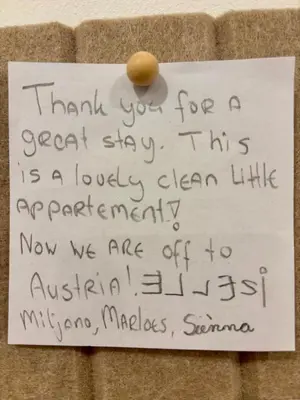 Thank you for a
great stay. This
is a lovely clean little
appartement!
Now we are off to
Austria!
Miljano, Marloes, Sienna